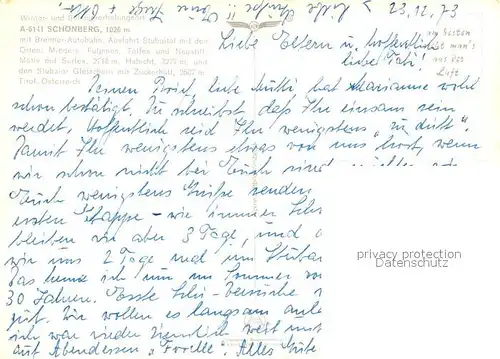 Liebe Grüße !! Eure Inge + 23.12.73
Winter- und
A-6141 SCHÖNBERG, 1020 m
mit Brenner-Autobahn. Ausfahrt Stubaital mit den
Orten: Mieders, Fulpmes, Telfes und Neustift
Mitte mit Serles, 2718 m, Habicht, 3277 m, und
den Stubaier Gletschern mit Zuckerhütl, 3507 m
Tirol, Österreich
Liebe Eltern u. hoffentlich
liebe
am besten
ist man's
aus der
Luft
Deinen Brief, liebe Mutti, hat Marianne wohl
schon bestätigt. Du schreibst daß Ihr einsam sein
werdet, hoffentlich seid Ihr wenigstens "zu dritt".
Damit Ihr wenigstens etwas von uns hört, wenn
wir schon nicht bei Euch sind
Euch wenigstens Grüße senden
ersten Etappe - wie immer
bleiben wir aber 3 Tage, und
wir uns 2 Tage und im Stubai
Das kenne ich nur im Sommer vor
30 Jahren. Erste Ski-Versuche
gut. Wir wollen es langsam
ich war wieder ziemlich weit
auf Abendessen "Forelle". Alles Gute
privacy protection
Datenschutz